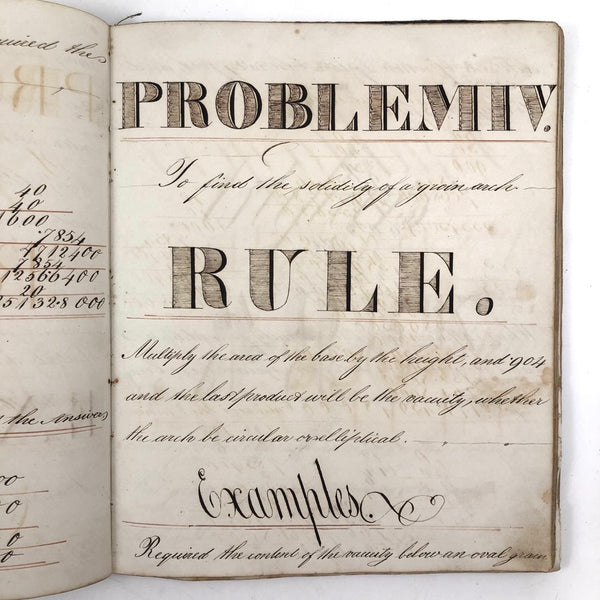 uired the
40
40
1600
.7854
1712400
7854
12566400
20
251328000
the Answer
00
0
0
0
PROBLEM IV.
To find the solidity of a groin arch
RULE.
Multiply the area of the base by the height, and .904
and the last product will be the vacuity, whether
the arch be circular or elliptical.
Examples.
Required the content of the vacuity below an oval groin